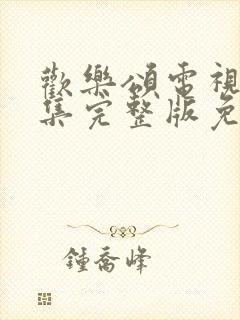 歡樂頌電視
集完整版免
鍾喬峰